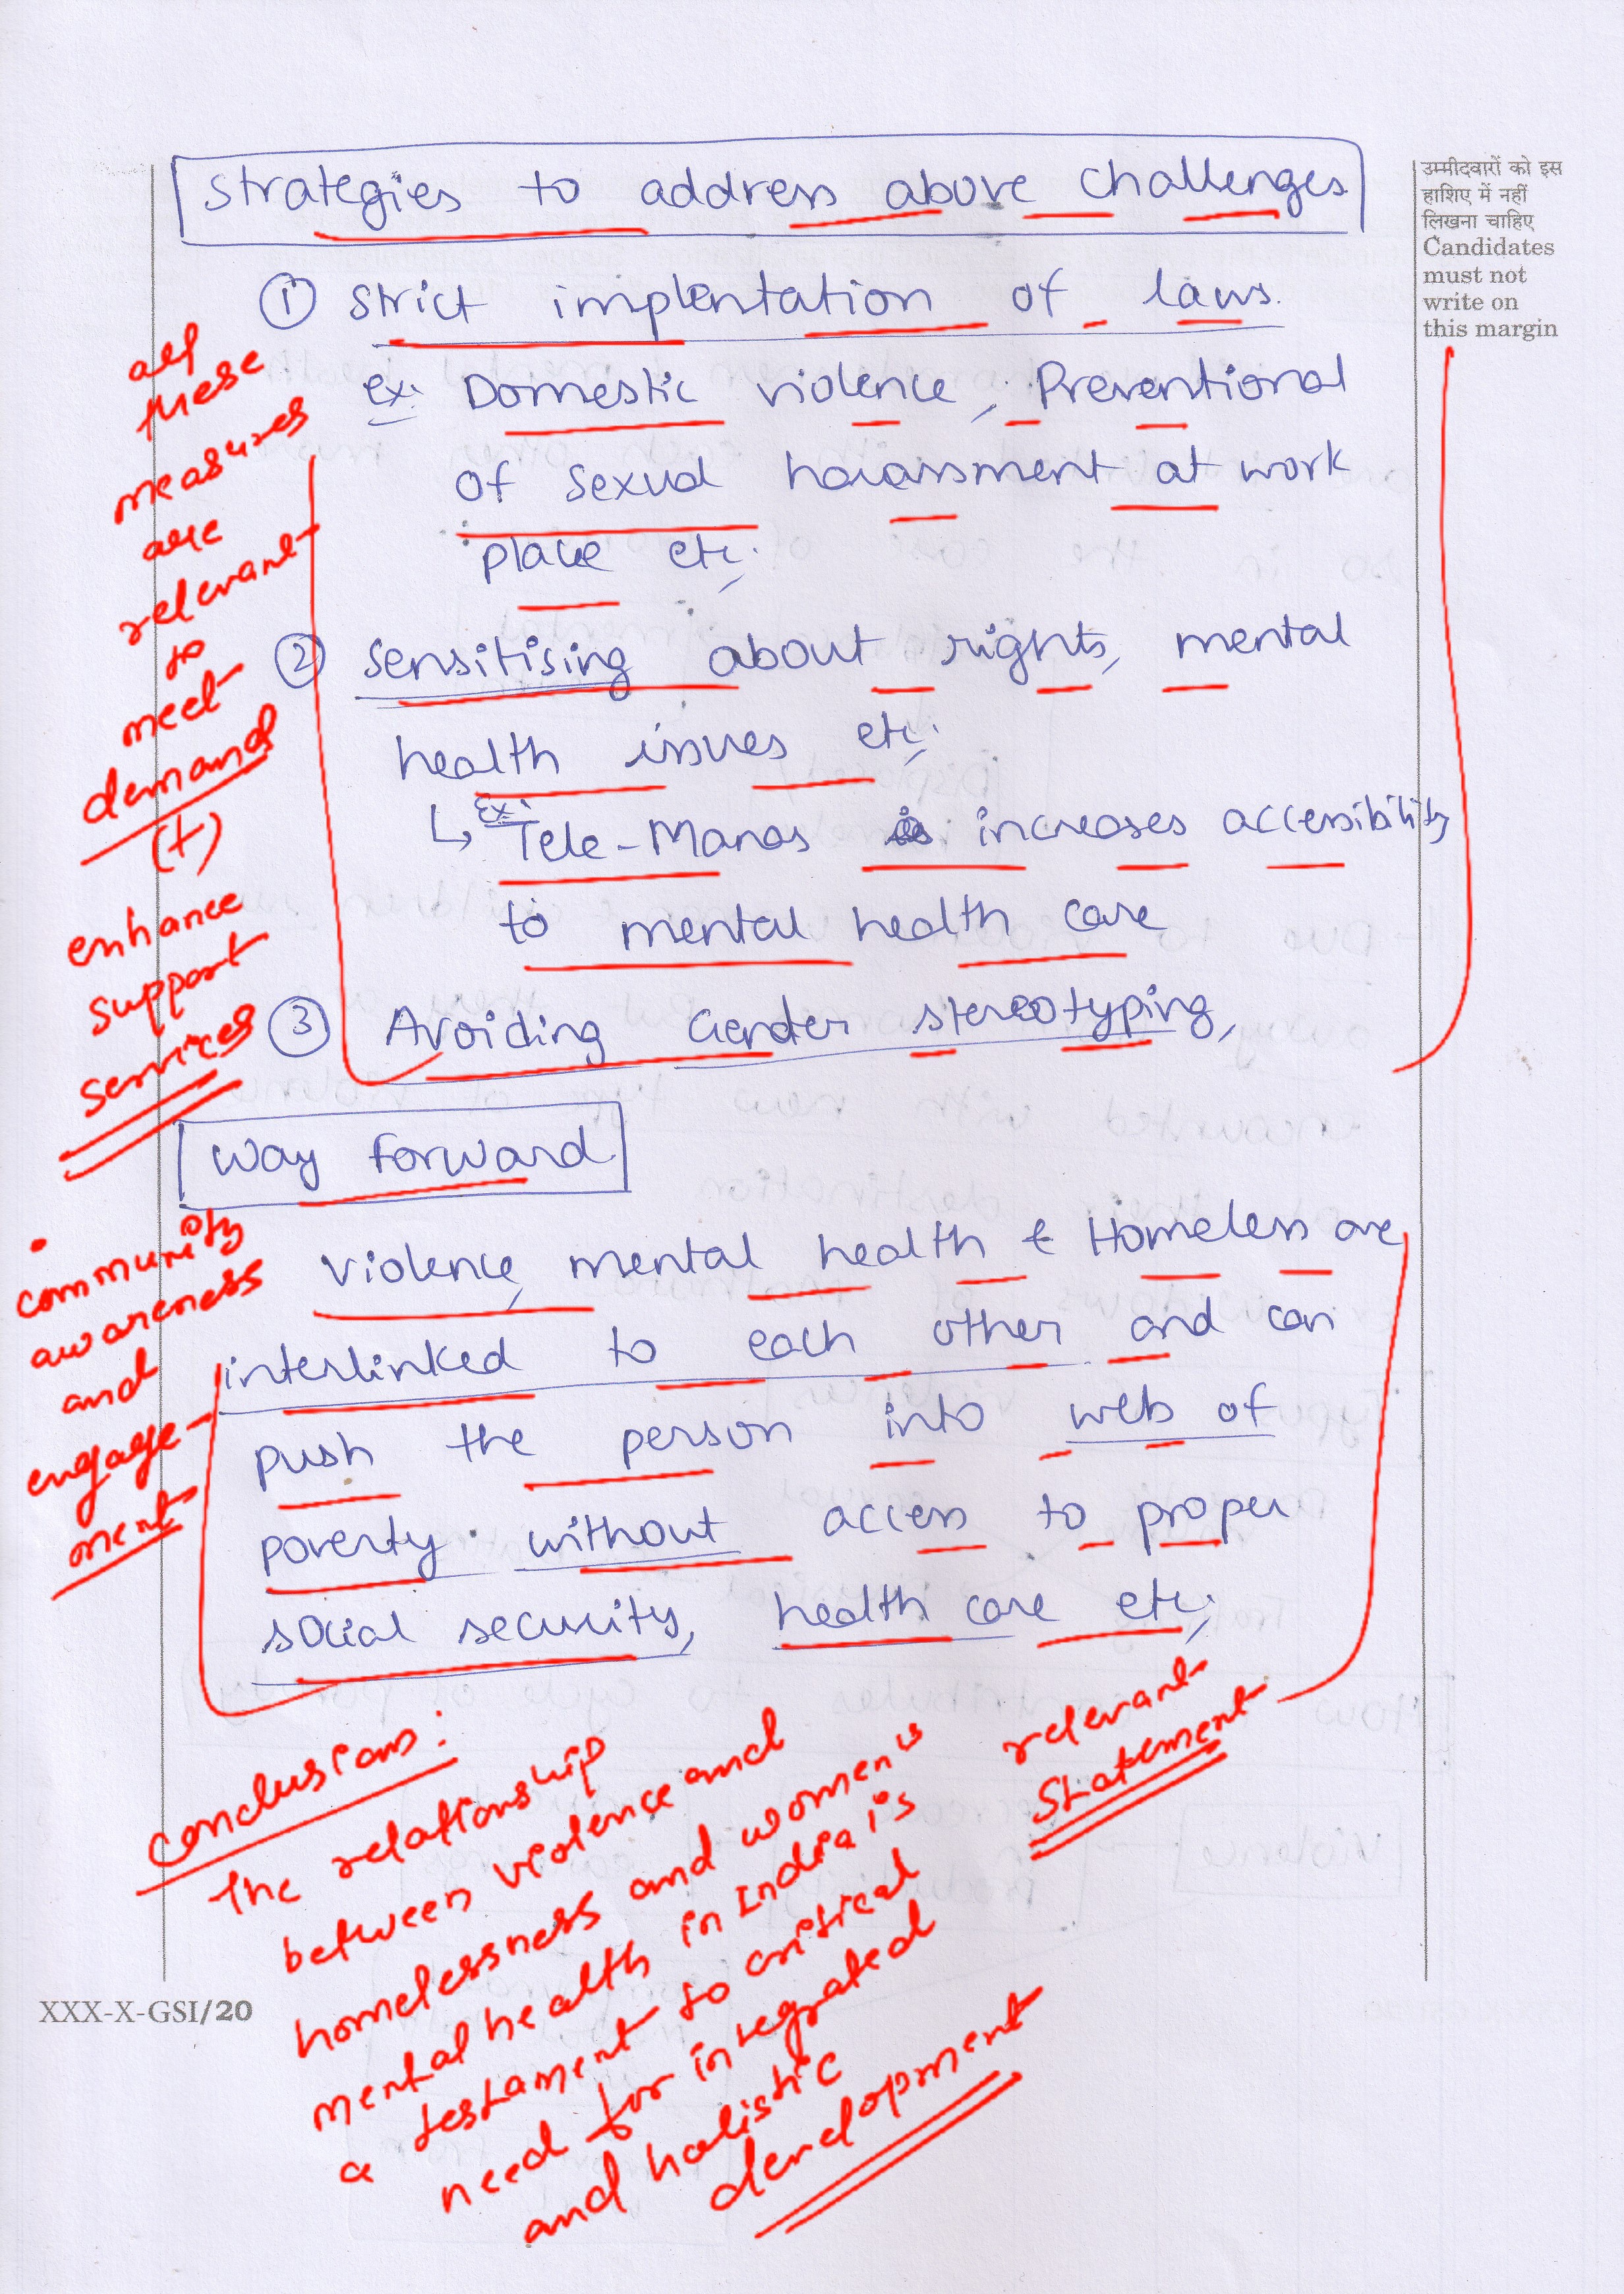 Strategies to address above challenges
① Strict implentation of laws.
ex: Domestic violence, Preventional
of sexual harassment at work
place etc;
② Sensitising about rights, mental
health issues etc;
↳ Ex: Tele-Manas increases accessibility
to mental health care
③ Avoiding Gender stereotyping,
Way forward
violence, mental health & Homeless are
interlinked to each other and can
push the person into web of
poverty without access to proper
social security, health care etc;
उम्मीदवारों को इस
हाशिए में नहीं
लिखना चाहिए
Candidates
must not
write on
this margin
all
these
measures
are
relevant
to
meet
demand
(+)
enhance
support
services
• community
awareness
and
engage-
ment
relevant
statement
conclusion:
The relationship
between violence and
homelessness and women's
mental health in India is
a testament to critical
need for integrated
and holistic
development
XXX-X-GSI/20